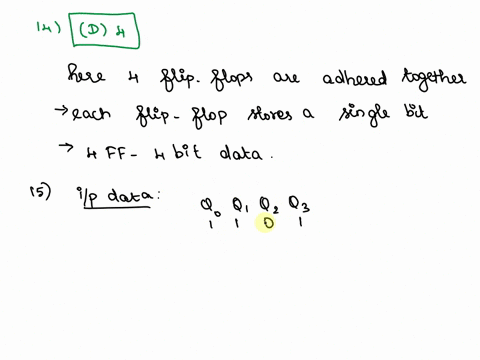 14) (D) 4
here 4 flip-flops are adhered together
→ each flip-flop stores a single bit
→ 4 FF - 4 bit data.
15) i/p data: Q0 Q1 Q2 Q3
1 1 0 1